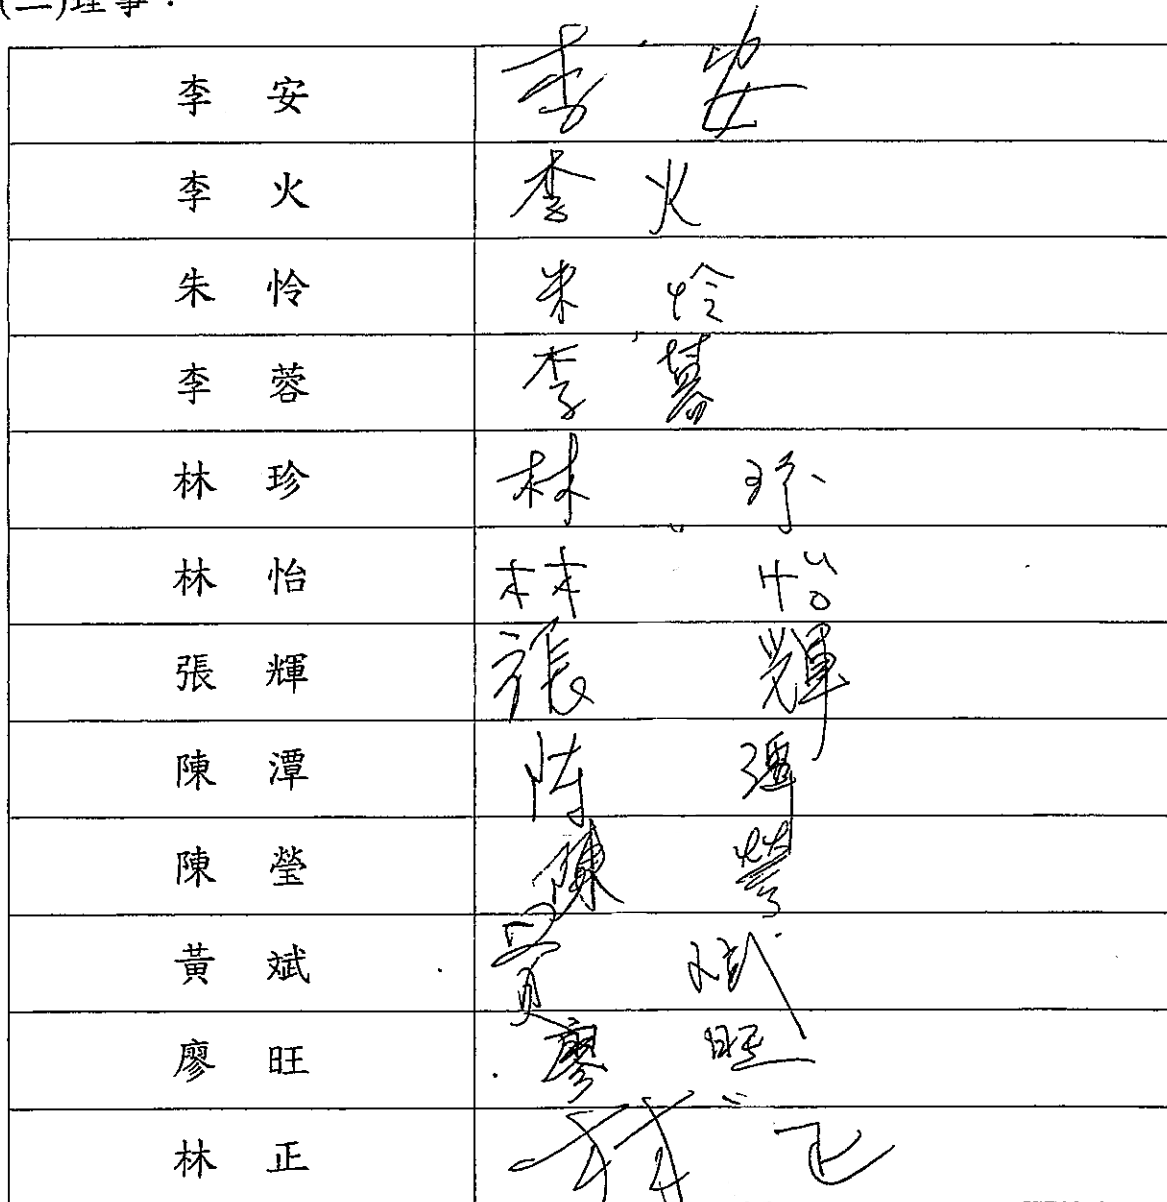 (二)理事：
李 安 李 安
李 火 李 火
朱 怜 朱 怜
李 蓉 李 蓉
林 珍 林 珍
林 怡 林 怡
張 輝 張 輝
陳 潭 陳 潭
陳 瑩 陳 瑩
黃 斌 黃 斌
廖 旺 廖 旺
林 正 林 正